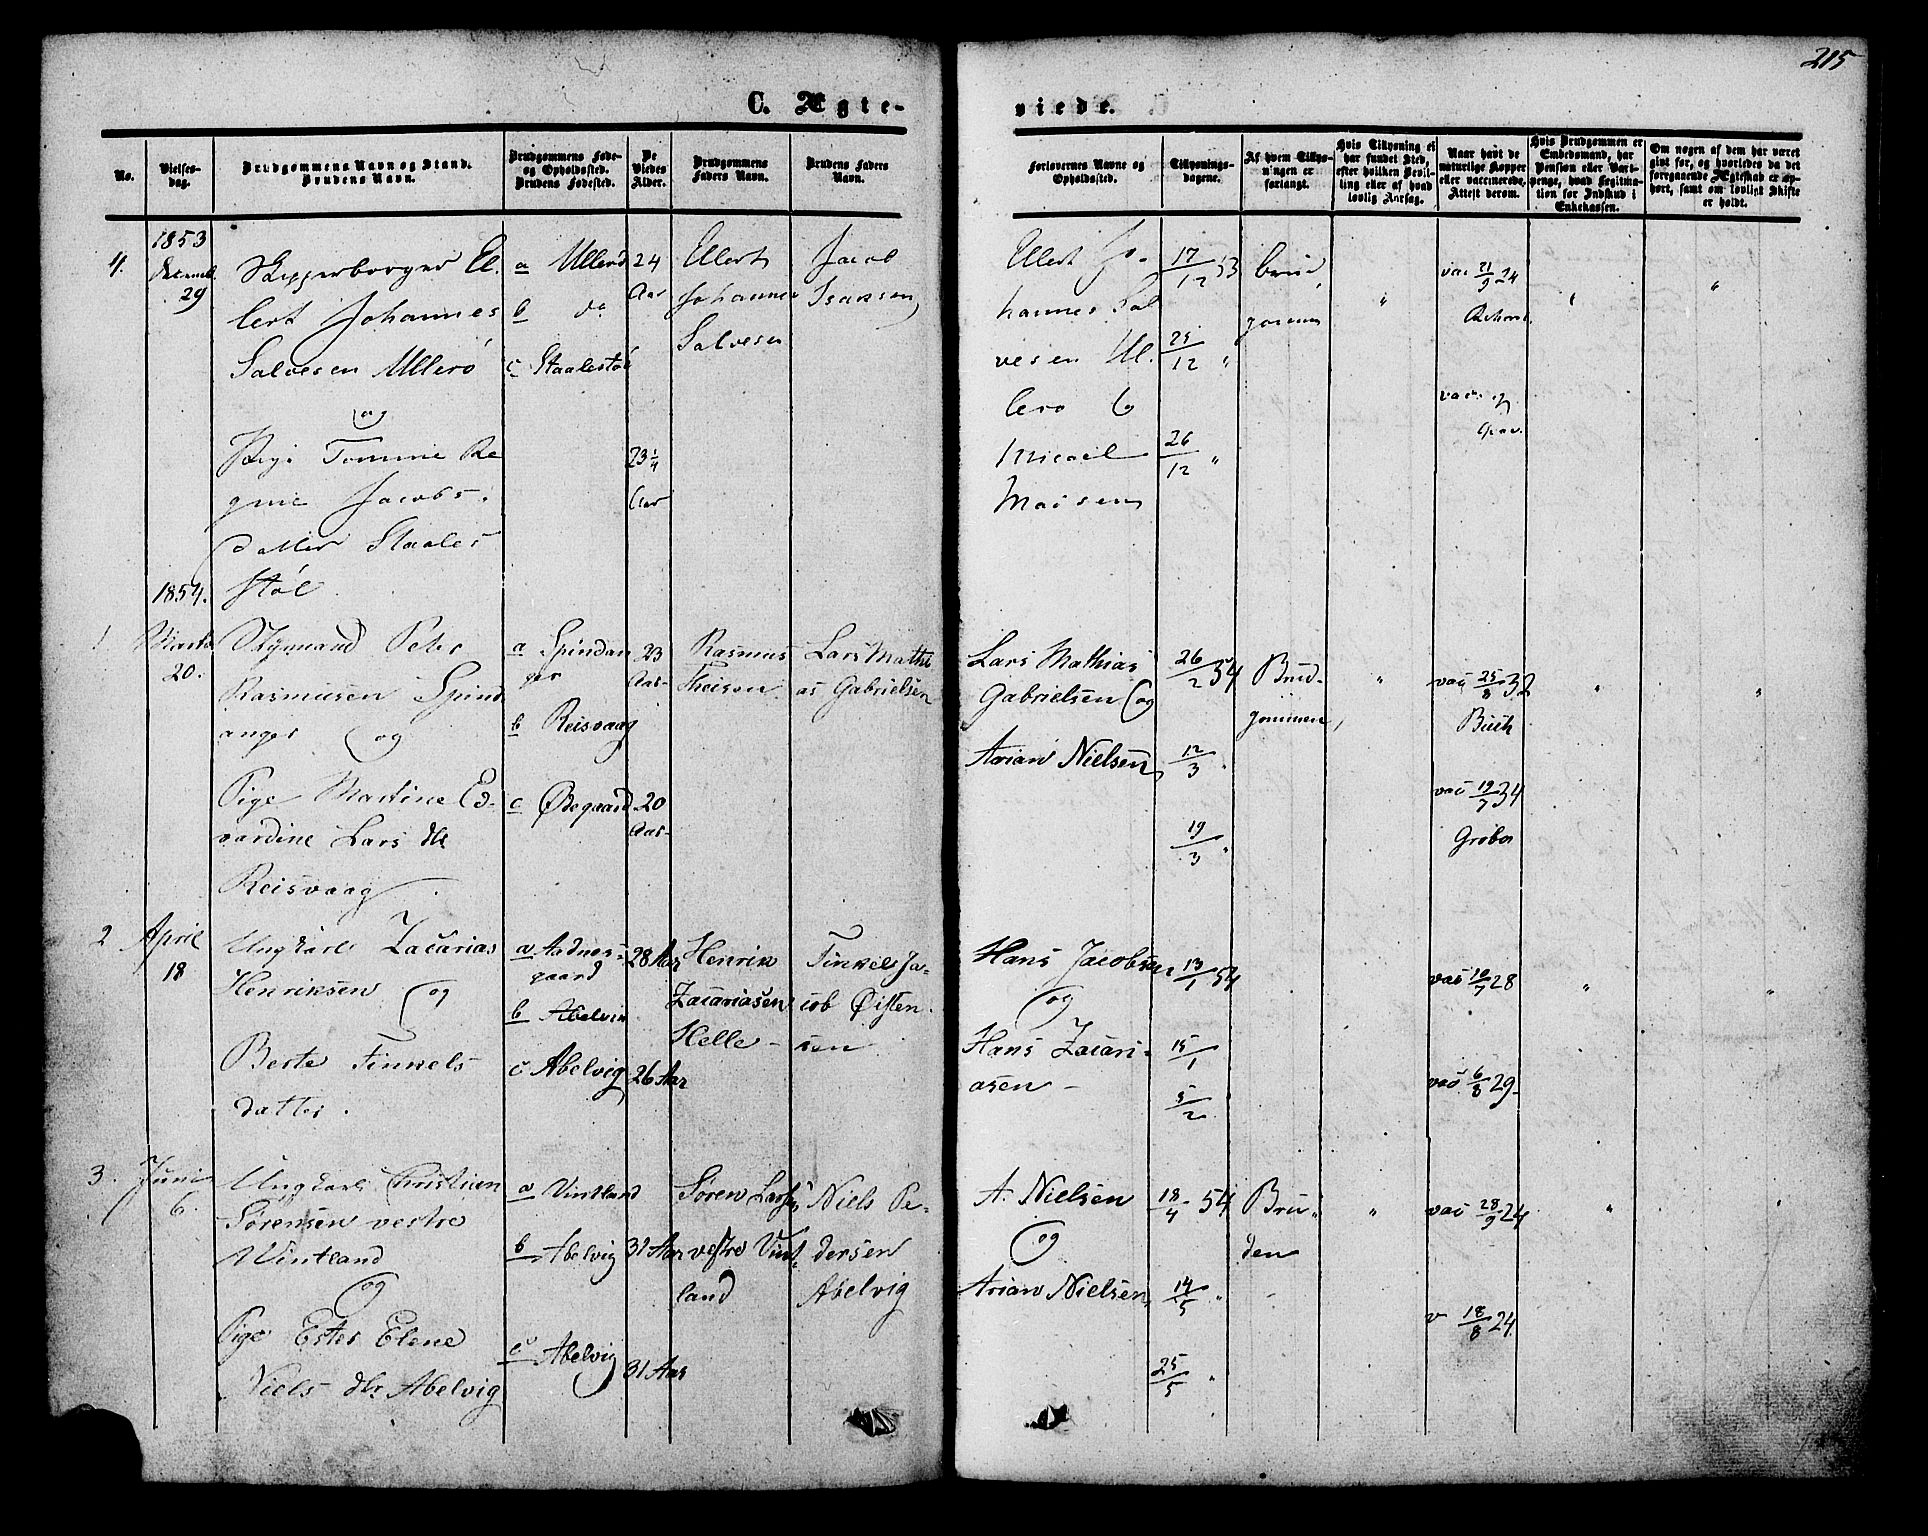 215
C. Ægte-
viede.
No.
Vielses-
dag.
Brudgommens Navn og Stand.
Brudens Navn.
Brudgommens Føde-
og Opholdssted.
Brudens Fødested.
De
Viedes
Alder.
Brudgommens
Faders Navn.
Brudens Faders
Navn.
Forlovernes Navne og
Opholdssted.
Tillysnings-
dagene.
Af hvem Tillys-
ningen er
forlangt.
Hvis Tillysning ei
har fundet Sted,
efter hvilken Bevil-
ling eller af hvad
lovlig Aarsag.
Naar havt de
naturlige Kopper
eller vaccinerede,
Attest derom.
Hvis Brudgommen er
Embedsmand, har
Pension eller Vart-
penge, hvad Legitima-
tion for Indskud i
Enkekassen.
Om nogen af dem har været
gift før, og hvorledes da det
foregaaende Ægteskab er op-
hørt, samt om lovligt Skifte
er holdt.
1853
4.
29
Skipperborger El-
lert Johannes
Salvesen Ullerö
og
Pige Tomine Re
gine Jacobs-
datter Staales
stöl
a Ullerö
b do
c Staalestöl
24
Aar
23 1/4
Aar
Ellert
Johannes
Salvesen
Jacob
Isaksen
Ellert Jo-
hannes Sal
vesen Ul-
lerö og
Micael
Madsen
17/12 53
25/12 "
26/12 "
Brud
gommen
"
vac 21/9 24
"
"
1854.
1
Marts
20.
Styrmand Peter
Rasmusen Spind
anger og
Pige Martine Ed-
vardine Lars dtr
Reisvaag
a Spindan
ger
b Reisvaag
c Ødegaard
23
Aar
20
Aar
Rasmus
Theisen
Lars Mathi
as Gabrielsen
Lars Mathias
Gabrielsen og
Arian Nielsen
26/2 54
12/3 "
19/3 "
Brud-
gommen
"
vac 25/8 32
Buch
vac 19/7 34
"
"
2
April
18
Ungkarl Zacarias
Henriksen og
Berte Tinkels
datter.
a Aadnes-
gaard
b Abelvig
c Abelvig
28 Aar
26 Aar
Henrik
Zacariasen
Helle
Tinkel Ja-
cob Øisten-
sen
Hans Jacobsen
og
Hans Zacari-
asen
13/1 54
15/1
5/2
vac 10/7 28
vac 6/8 29
"
"
3.
Juni
6.
Ungkarl Christian
Sörensen vestre
Vintland
og
Pige Ester Elene
Niels dtr Abelvig
a Vintland
b Abelvig
c Abelvig
31 Aar
31 Aar
Sören Larsen
vestre Vint-
land
Niels Pe-
dersen
Abelvig
A. Nielsen
og
Arian Nielsen
18/4 54
14/5 "
25/5 "
Bru-
den
"
vac 28/9 24
v 18/8 24
"